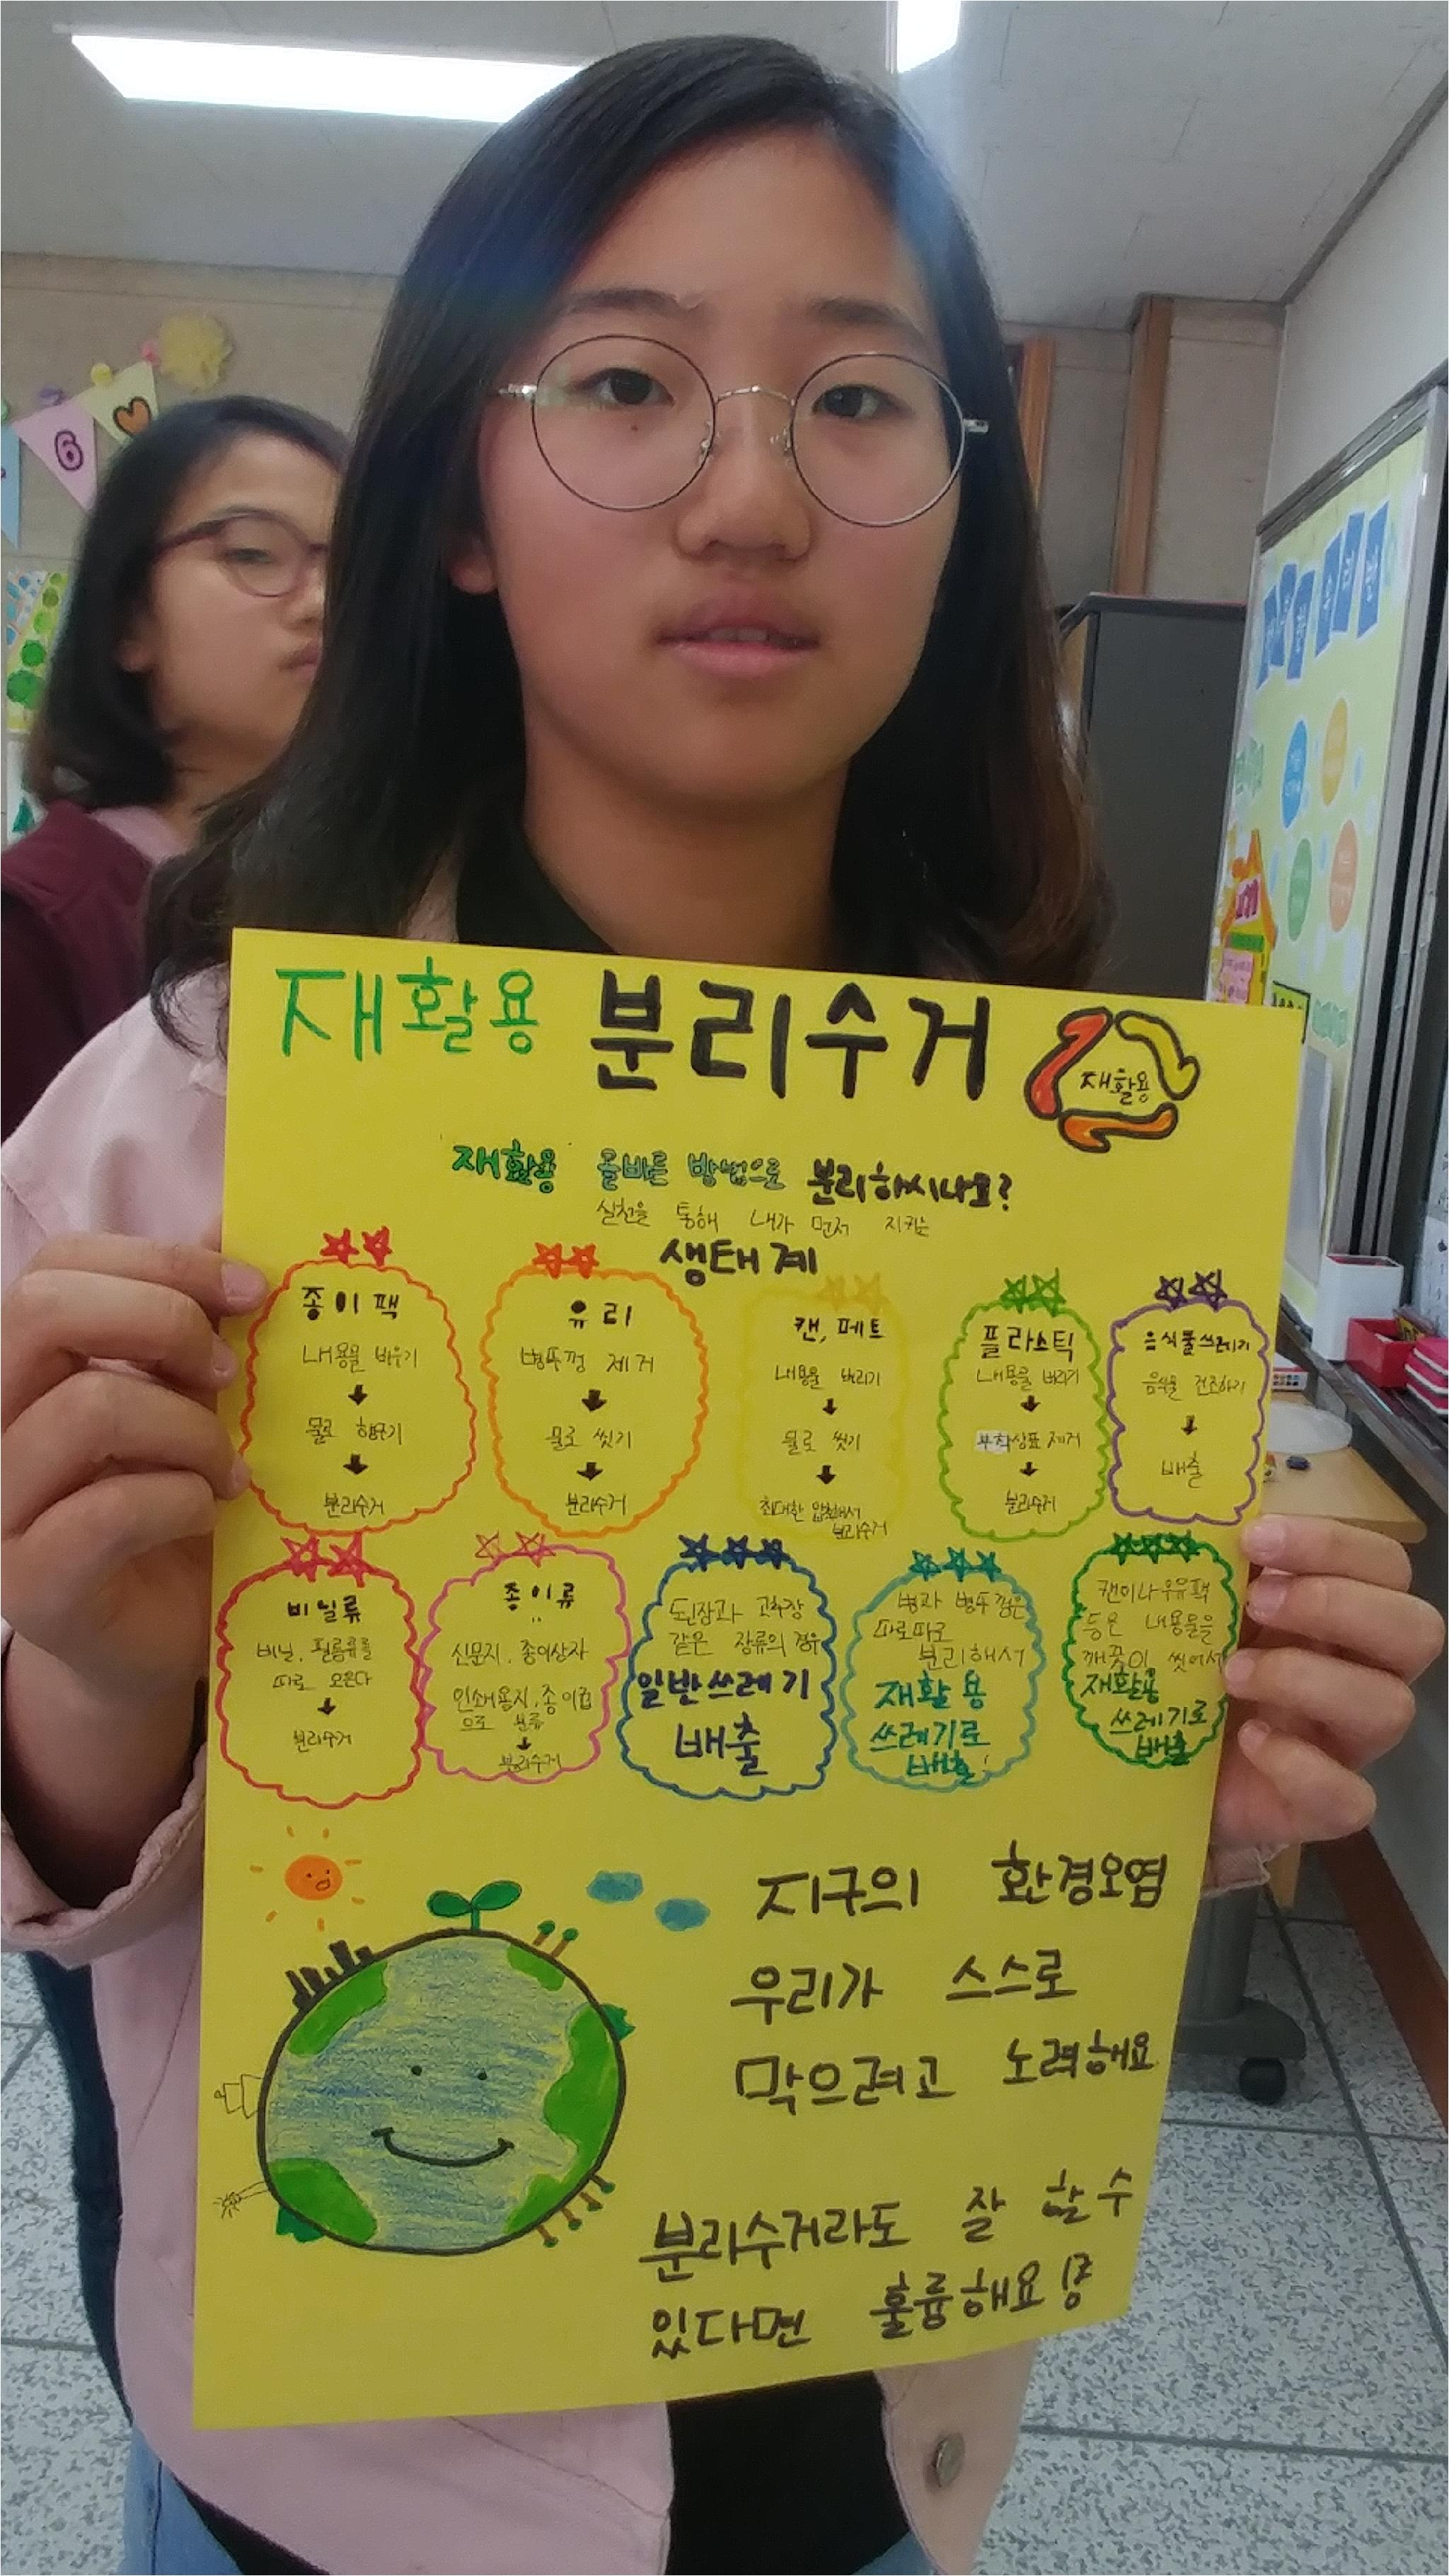 재활용 분리수거
재활용
재활용 올바른 방법으로 분리하시나요?
실천을 통해 내가 먼저 지키는
생태계
종이팩
내용물 비우기
물로 헹구기
분리수거
유리
병뚜껑 제거
물로 씻기
분리수거
캔, 페트
내용물 버리기
물로 씻기
최대한 압축해서
분리수거
플라스틱
내용물 버리기
부착상표 제거
분리수거
음식물쓰레기
음식물 건조하기
배출
비닐류
비닐, 필름류를
따로 모은다
분리수거
종이류
신문지, 종이상자
인쇄용지, 종이컵
으로 분류
분리수거
된장과 고추장
같은 장류의 경우
일반쓰레기
배출
병과 병뚜껑은
따로따로
분리해서
재활용
쓰레기로
배출
캔이나 우유팩
등은 내용물을
깨끗이 씻어서
재활용
쓰레기로
배출
지구의 환경오염
우리가 스스로
막으려고 노력해요
분리수거라도 잘 할 수
있다면 훌륭해요!
6